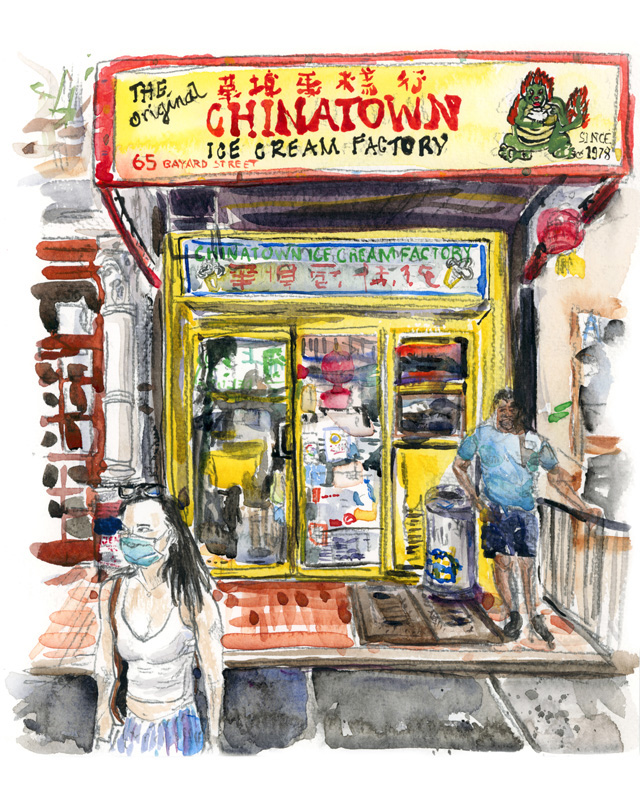 THE original
華埠雪糕行
CHINATOWN
ICE CREAM FACTORY
65 BAYARD STREET
SINCE 1978
CHINATOWN ICE CREAM FACTORY